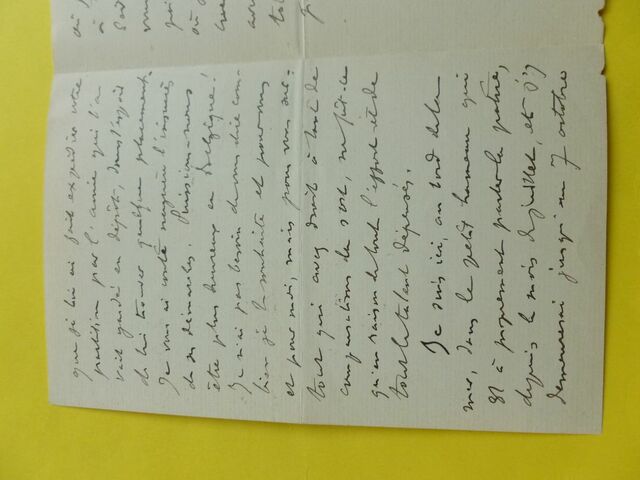 que je lui ai fait expédier votre
partition par l'amie qui l'a
vait gardée en dépôt, dans l'espoir
de lui trouver quelque placement.
Je vous ai conté naguère l'insuccès
de ses démarches. Puissions-nous
être plus heureux en Belgique!
Je n'ai pas besoin de vous dire com-
bien je le souhaite et pour vous
et pour moi, mais pour vous sur-
tout qui avez droit à tant de
compensations du sort, ne fût-ce
qu'en raison de tout l'effort et de
tout le talent dépensés.
Je suis ici, au bord de la
mer, dans le petit hameau qui
est à proprement parler la patrie,
depuis le mois de juillet, et j'y
demeurerai jusqu'au 7 octobre